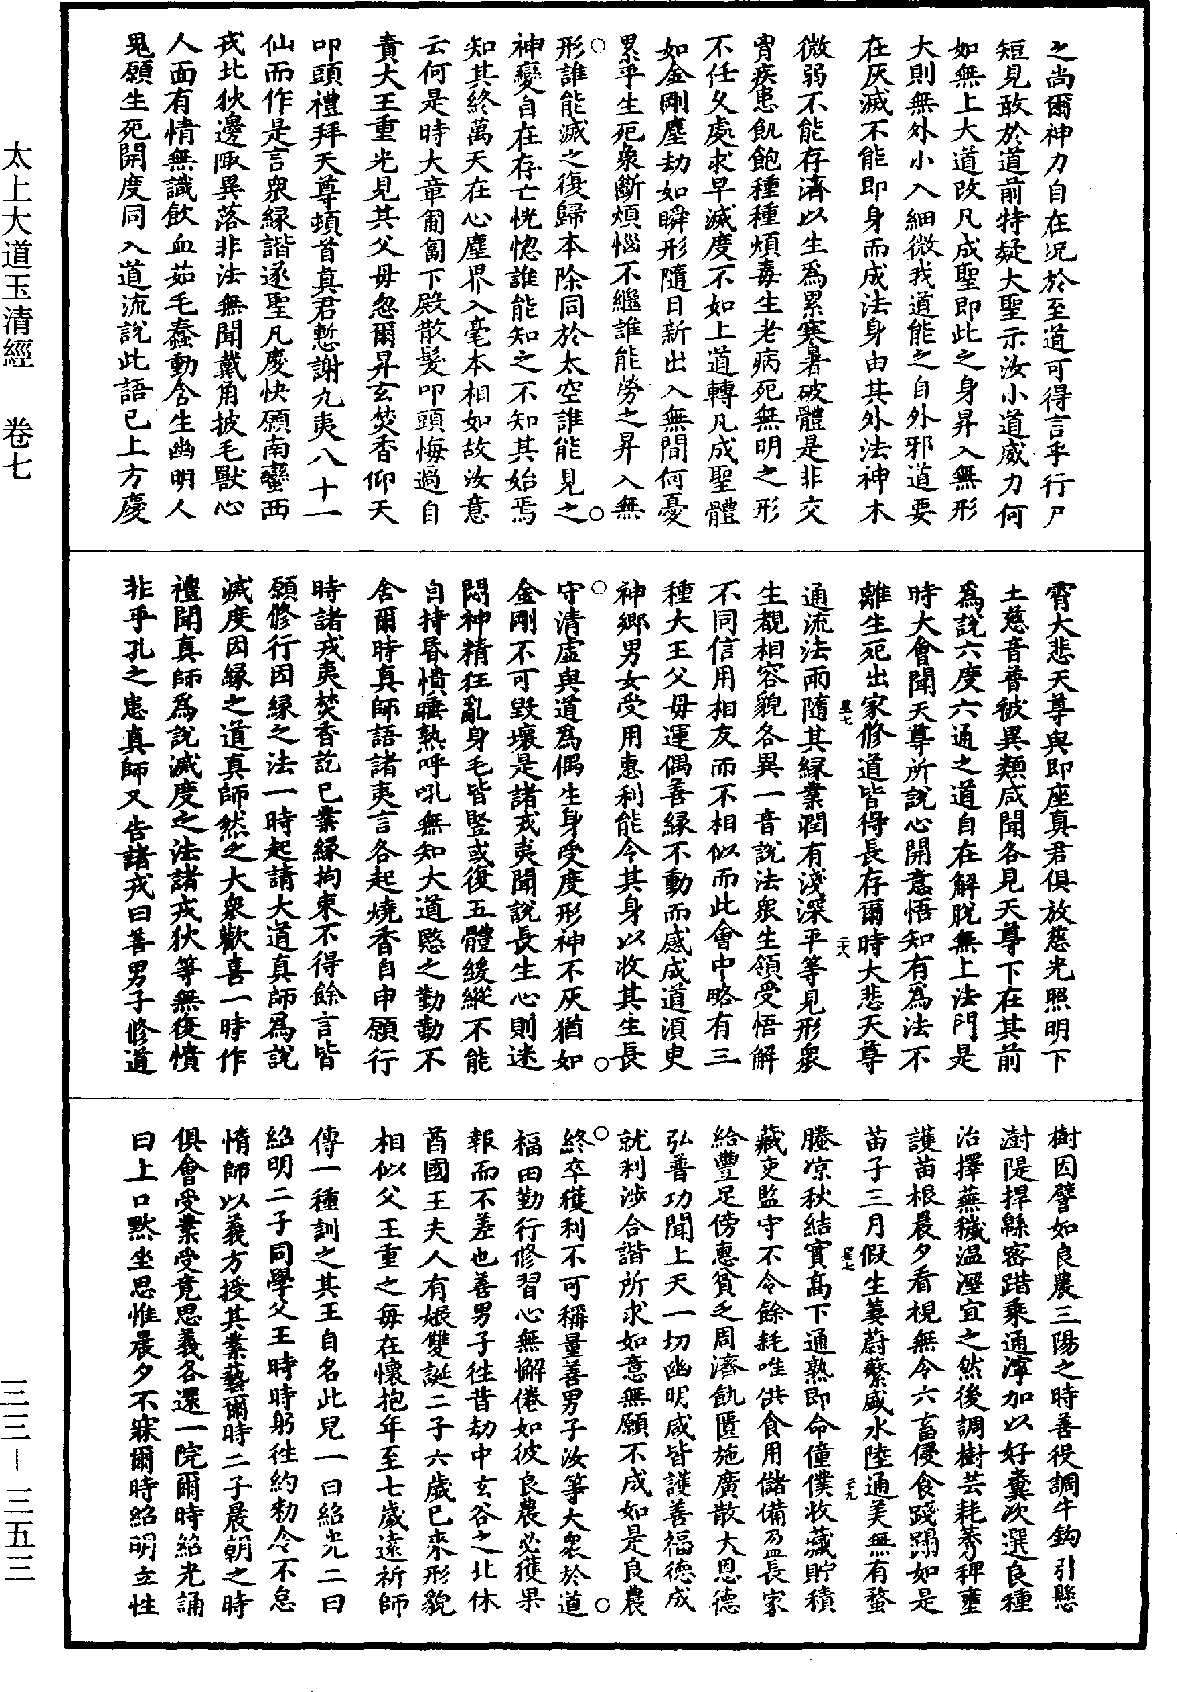 之尚爾神力自在況於至道可得言乎行尸
短見敢於道前特疑大聖示汝小道威力何
如無上大道改凡成聖即此之身昇入無形
大則無外小入細微我道能之自外邪道要
在灰滅不能即身而成法身由其外法神木
微弱不能存濟以生爲累寒暑破體是非交
胷疾患飢飽種種煩毒生老病死無明之形
不任久處求早滅度不如上道轉凡成聖體
如金剛塵劫如瞬形隨日新出入無間何憂
累乎生死衆斷煩惱不繼誰能勞之昇入無
形誰能滅之復歸本除同於太空誰能見之
神變自在存亡恍惚誰能知之不知其始焉
知其終萬天在心塵界入毫本相如故汝意
云何是時大章匍匐下殿散髮叩頭悔過自
責大王重光見其父母忽爾昇玄焚香仰天
叩頭禮拜天尊頓首真君慙謝九夷八十一
仙而作是言衆緣諧遂聖凡慶快願南蠻西
戎北狄邊陬異落非法無聞戴角披毛獸心
人面有情無識飲血茹毛蠢動含生幽明人
鬼願生死開度同入道流說此語已上方慶
霄大悲天尊與即座真君俱放慈光照明下
土慈音普被異類咸聞各見天尊下在其前
爲說六度六通之道自在解脫無上法門是
時大會聞天尊所說心開意悟知有爲法不
離生死出家修道皆得長存爾時大悲天尊
通流法雨隨其緣業潤有淺深平等見形衆
生覩相容貌各異一音說法衆生領受悟解
不同信用相友而不相似而此會中略有三
種大王父母運偶善緣不動而感成道須臾
神鄉男女受用惠利能令其身以收其生長
守清虛與道爲偶生身受度形神不灰猶如
金剛不可毀壞是諸戎夷聞說長生心則迷
悶神精狂亂身毛皆竪或復五體緩縱不能
自持昏憒睡熟呼吼無知大道愍之勤勤不
舍爾時真師語諸夷言各起燒香自申願行
時諸戎夷焚香訖已業緣拘束不得餘言皆
願修行因緣之法一時起請大道真師爲說
滅度因緣之道真師然之大衆歡喜一時作
禮聞真師爲說滅度之法諸戎狄等無復憒
非乎孔之患真師又告諸戎曰善男子修道
樹因譬如良農三陽之時善役調牛鈎引懸
澍隄捍緜密蹋乘通濘加以好糞次選良種
治擇蕪穢溫溼宜之然後調樹芸耗莠稗壅
護苗根晨夕看視無令六畜侵食踐蹋如是
苗子三月倣生萋蔚蘩盛水陸通美無有蝥
螣凉秋結實高下通熟即命僮僕收藏貯積
藏吏監守不令餘耗唯供食用儲備盈長家
給豐足傍惠貧乏周濟飢匱施廣散大恩德
弘普功聞上天一切幽明咸皆護善福德成
就利涉合諧所求如意無願不成如是良農
終卒獲利不可稱量善男子汝等大衆於道
福田勤行修習心無懈倦如彼良農必獲果
報而不差也善男子往昔劫中玄谷之北休
酋國王夫人有娠雙誕二子六歲已來形貌
相似父王重之每在懷抱年至七歲遠祈師
傅一種訓之其王自名此兒一曰紹光二曰
紹明二子同學父王時時躬往約勑令不怠
惰師以義方授其業藝爾時二子晨朝之時
俱會受業受竟思義各還一院爾時紹光誦
曰上口黙坐思惟晨夕不寐爾時紹明立性
太上大道玉清經 卷七
三三－三五三